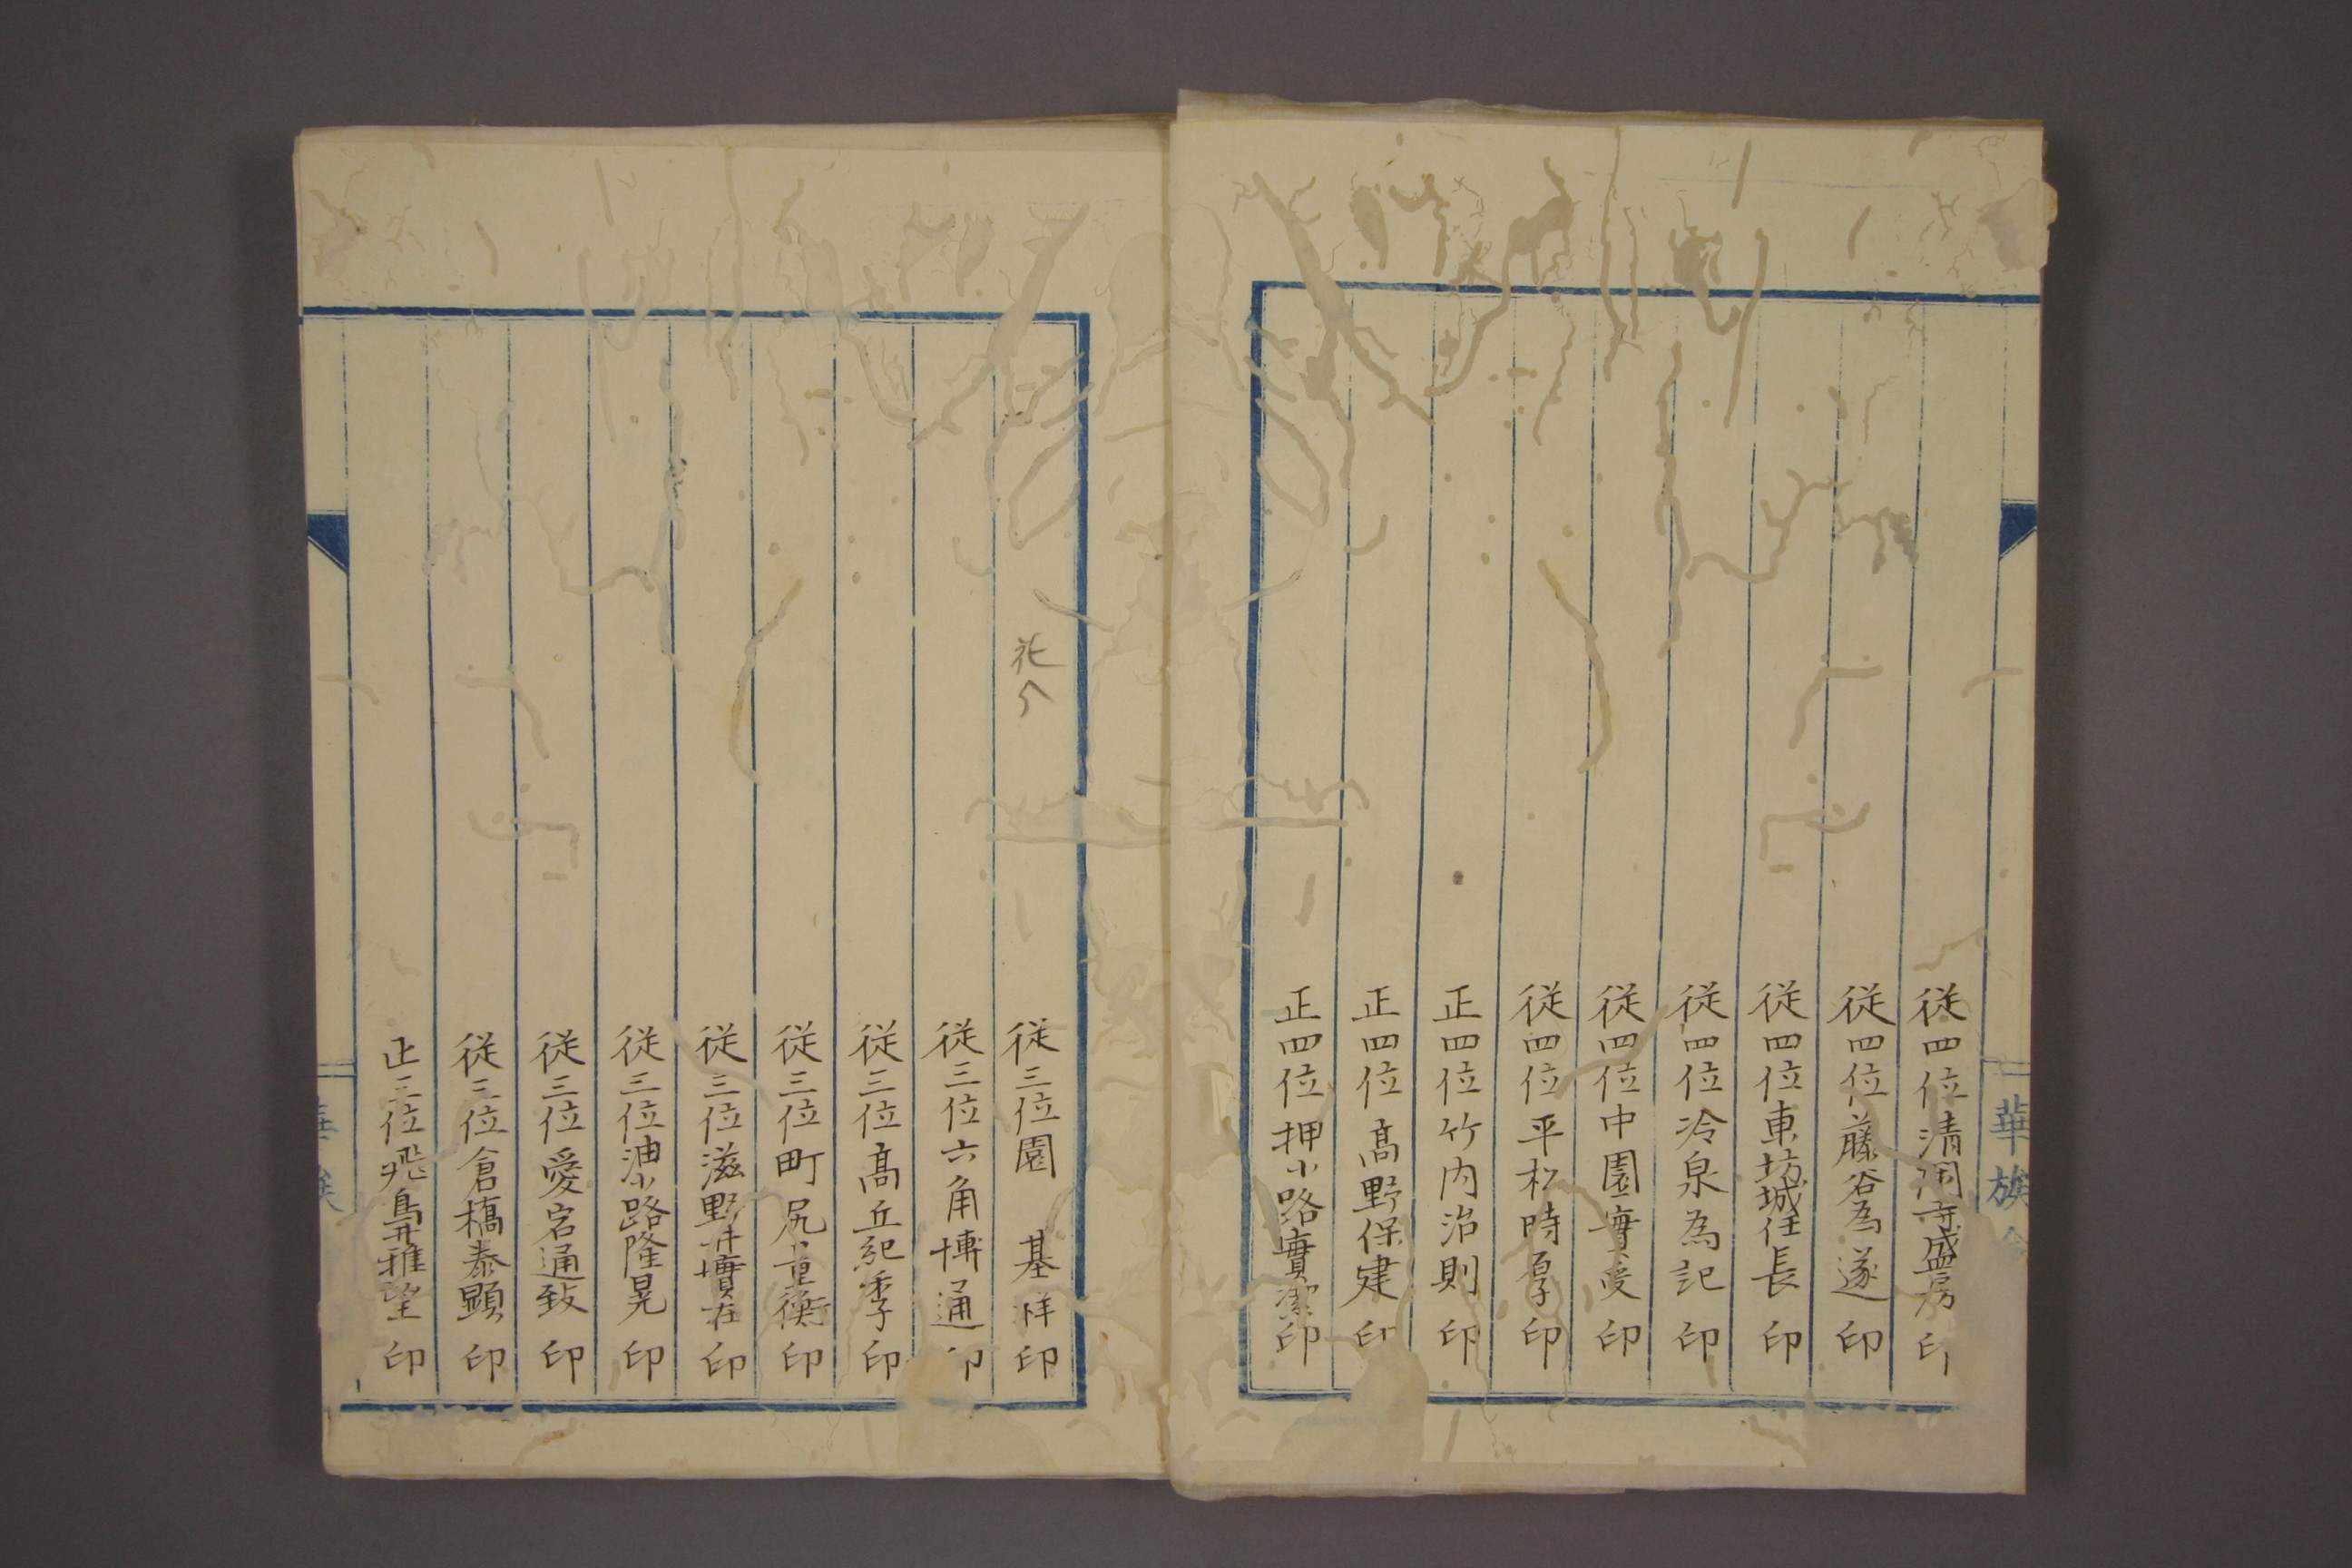 華族会
従四位清閑寺盛房印
従四位藤谷為遂印
従四位東坊城任長印
従四位冷泉為記印
従四位中園實受印
従四位平松時厚印
正四位竹内治則印
正四位髙野保建印
正四位押小路實潔印
従三位園基祥印
従三位六角博通印
従三位髙丘紀季印
従三位町尻量衡印
従三位滋野井實在印
従三位油小路隆晃印
従三位愛宕通致印
従三位倉橋泰顕印
正三位飛鳥井雅望印
華族